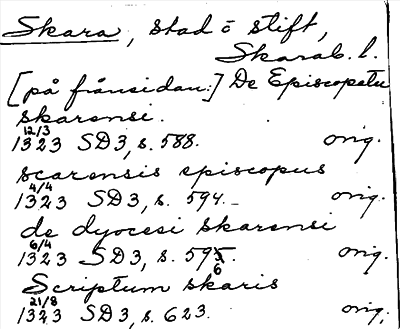 Skara, stad o stift,
Skarab. l.
[på frånsidan:] De Episcopatu
skarensi.
12/3
1323 SD3, s. 588. orig.
scarensis episcopus
4/4
1323 SD3, s. 594. orig.
de dyocesi skarensi
6/4
1323 SD3, s. 595, orig.
6
Scriptum skaris
21/8
1323 SD3, s. 623. orig.